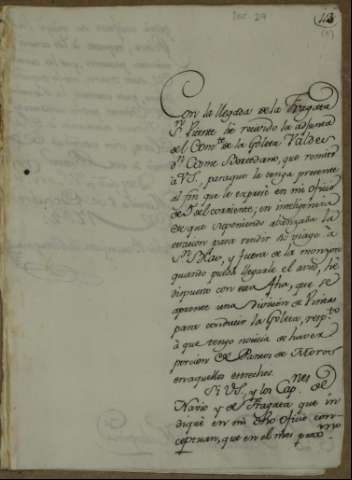 Doc. 29
113
Con la llegada de la Fragata
Sn. Vicente he recivido la adjunta
del Comte. de la Goleta Valdes
Dn. Cosme
que remito
a VS., para que la tenga presente
al fin que le expuse en mi Oficio
de del corriente; en inteligencia
de que suponiendo abanzada la
estacion para rendir su viage à
Sn. Blas, y fuera de la monzon
quando pueda llegarle el avio, hé
dispuesto con esta fha, que se
apronte una Division de
para conducir la Goleta, respto.
à que tengo noticia de haver
porcion de Pancos de Moros
en aquellos estrechos.
Si VS. y los Capnes. de
Navio y de Fragata que in
diqué en mi dho Oficio con-
ceptuan, que en el mes